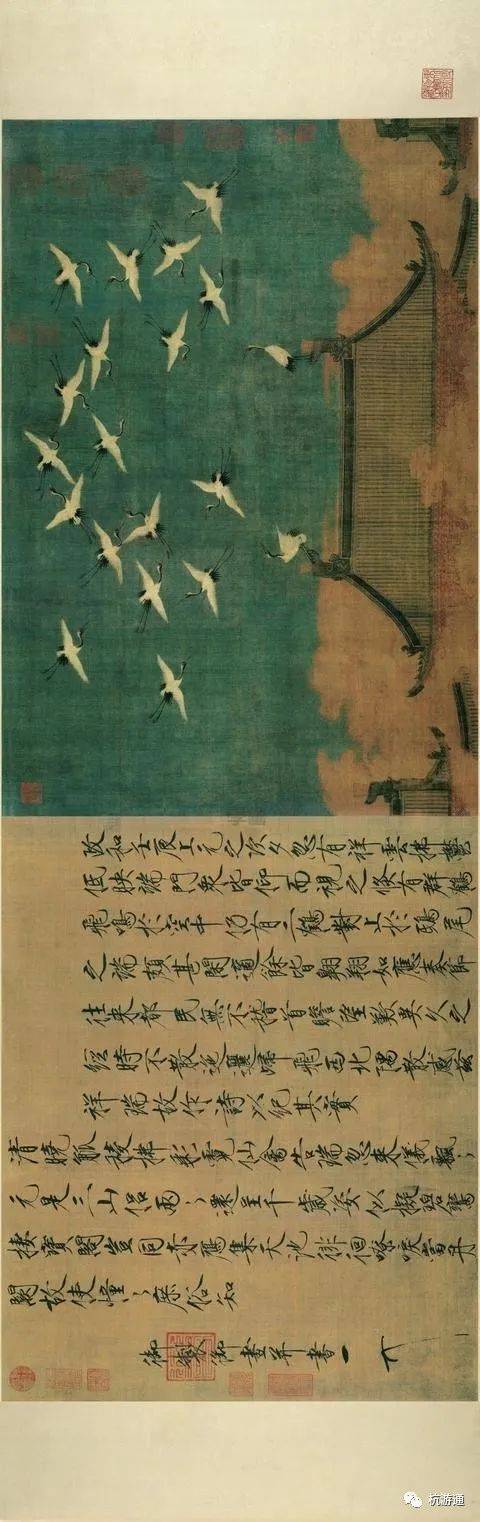 政和壬辰上元之次夕忽有祥雲拂鬱
低映端門衆皆仰而視之倏有群鶴
飛鳴於空中仍有二鶴對止於鴟尾
之端頗甚閑適餘皆翱翔如應奏節
往來都民無不稽首瞻望歎異久之
經時不散迤邐歸飛西北隅散感茲
祥瑞故作詩以紀其實
清曉觚稜拂彩霓仙禽告瑞忽來儀飄〻
元是三山侶兩〻還呈千歲姿似擬碧鸞
棲寶閣豈同赤鴈集天池徘徊嘹唳當丹
闕故使憧〻庶俗知
御製御畫并書
杭游通